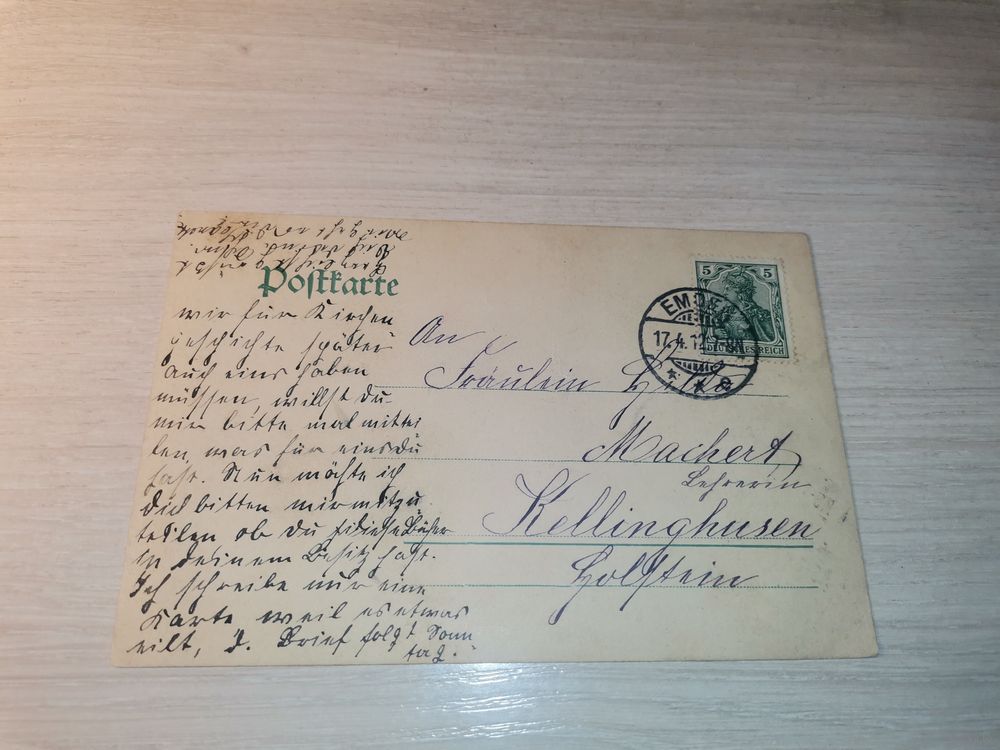 Postkarte
wir für Kirchen
geschichte später
auch eins haben
müssen, willst du
mir bitte mal mittei
len, was für eins du
hast. Nun möchte ich
dich bitten mir mitzu
teilen ob du diese Bücher
in deinem Besitz hast.
Ich schreibe nur eine
Karte weil es etwas
eilt, d. Brief folgt Sonn
tag.
5 5
DEUTSCHES REICH
EMDEN
17.4.12. 7-8N
An
Fräulein
Machert
Lehrerin
Kellinghusen
Holstein